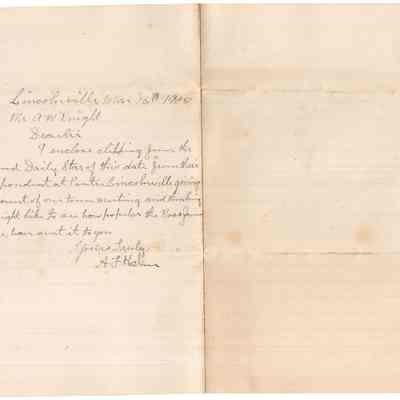 Lincolnville Mar 13th 1900
Mr A W Knight
Dear Sir
I enclose clipping from the
nd Daily Star of this date from their
pondent at Center Lincolnville giving
ount of our town meeting and thinking
ight like to see how popular the
e have sent it to you
Yours Truly
A